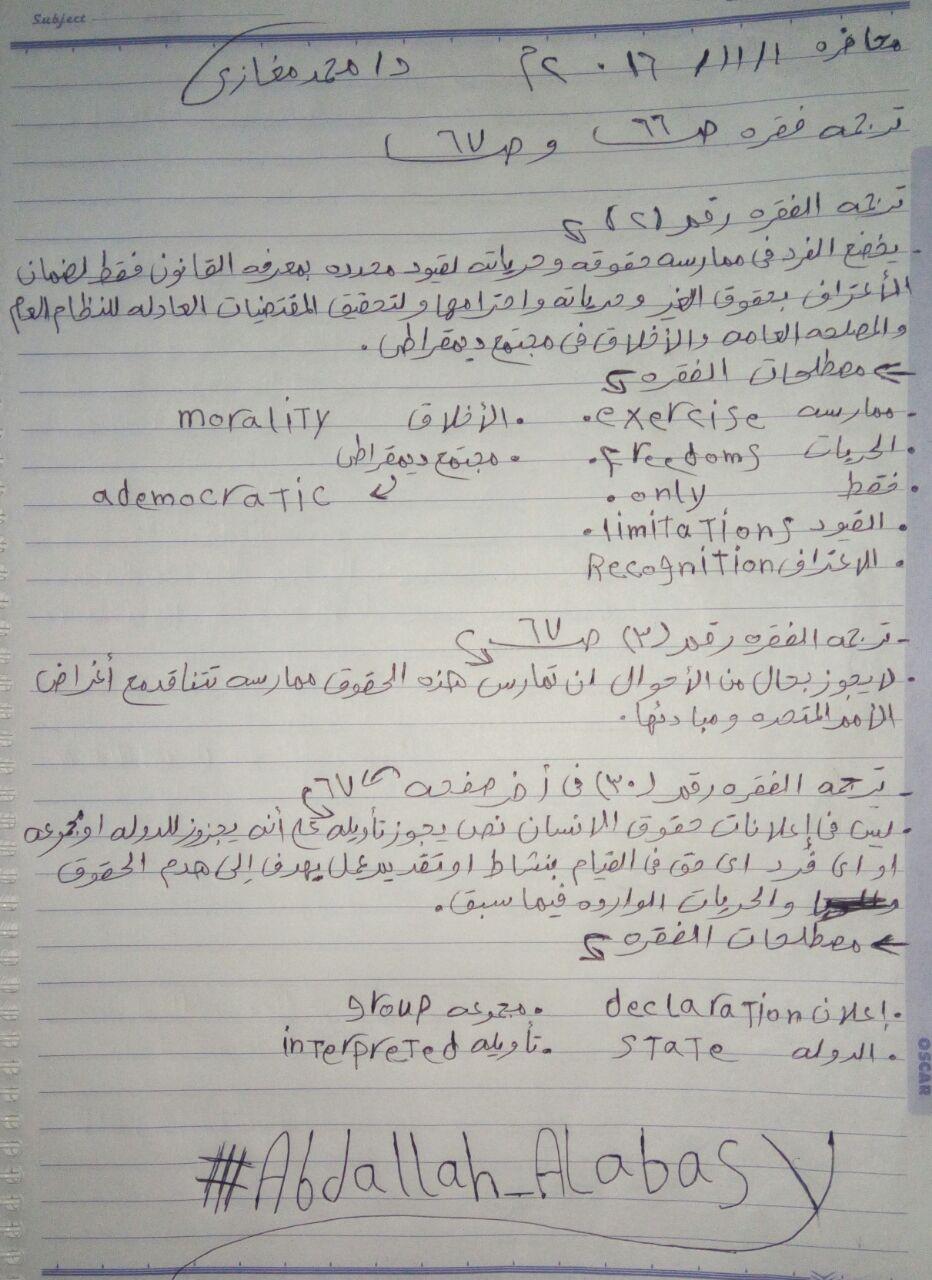 Subject
محاضره ١/١١/٢٠١٦م د/محمد مغازى
ترجمه فقره ص٦٦ و ص٦٧
ترجمه الفقره رقم (٢)
- يخضع الفرد فى ممارسه حقوقه وحرياته لقيود محدده بمعرفه القانون فقط لضمان
الأعتراف بحقوق الغير وحرياته واحترامها ولتحقيق المقتضيات العادله للنظام العام
والمصلحه العامه والأخلاق فى مجتمع ديمقراطى.
← مصطلحات الفقره
- ممارسه exercise. • الأخلاق morality
• الحريات freedoms. • مجتمع ديمقراطى
• فقط only. ademocratic
• القيود limitations.
• الاعتراف Recognition
- ترجمه الفقره رقم (٣) ص٦٧
• لا يجوز بحال من الأحوال ان تمارس هذه الحقوق ممارسه تتناقد مع أغراض
الأمم المتحده ومبادئها.
- ترجمه الفقره رقم (٣٠) فى أخر صفحه ٦٧
• ليس فى إعلانات حقوق الانسان نص يجوز تأويله على أنه يجزوز للدوله او مجموعه
او اى فرد اى حق فى القيام بنشاط او تقديم عمل يهدف إلى هدم الحقوق
والحريات الوارده فيما سبق.
← مصطلحات الفقره
• إعلان declaration • مجموعه group
• الدوله state • تأويله interpreted
#Abdallah_ALabasy
OSCAR